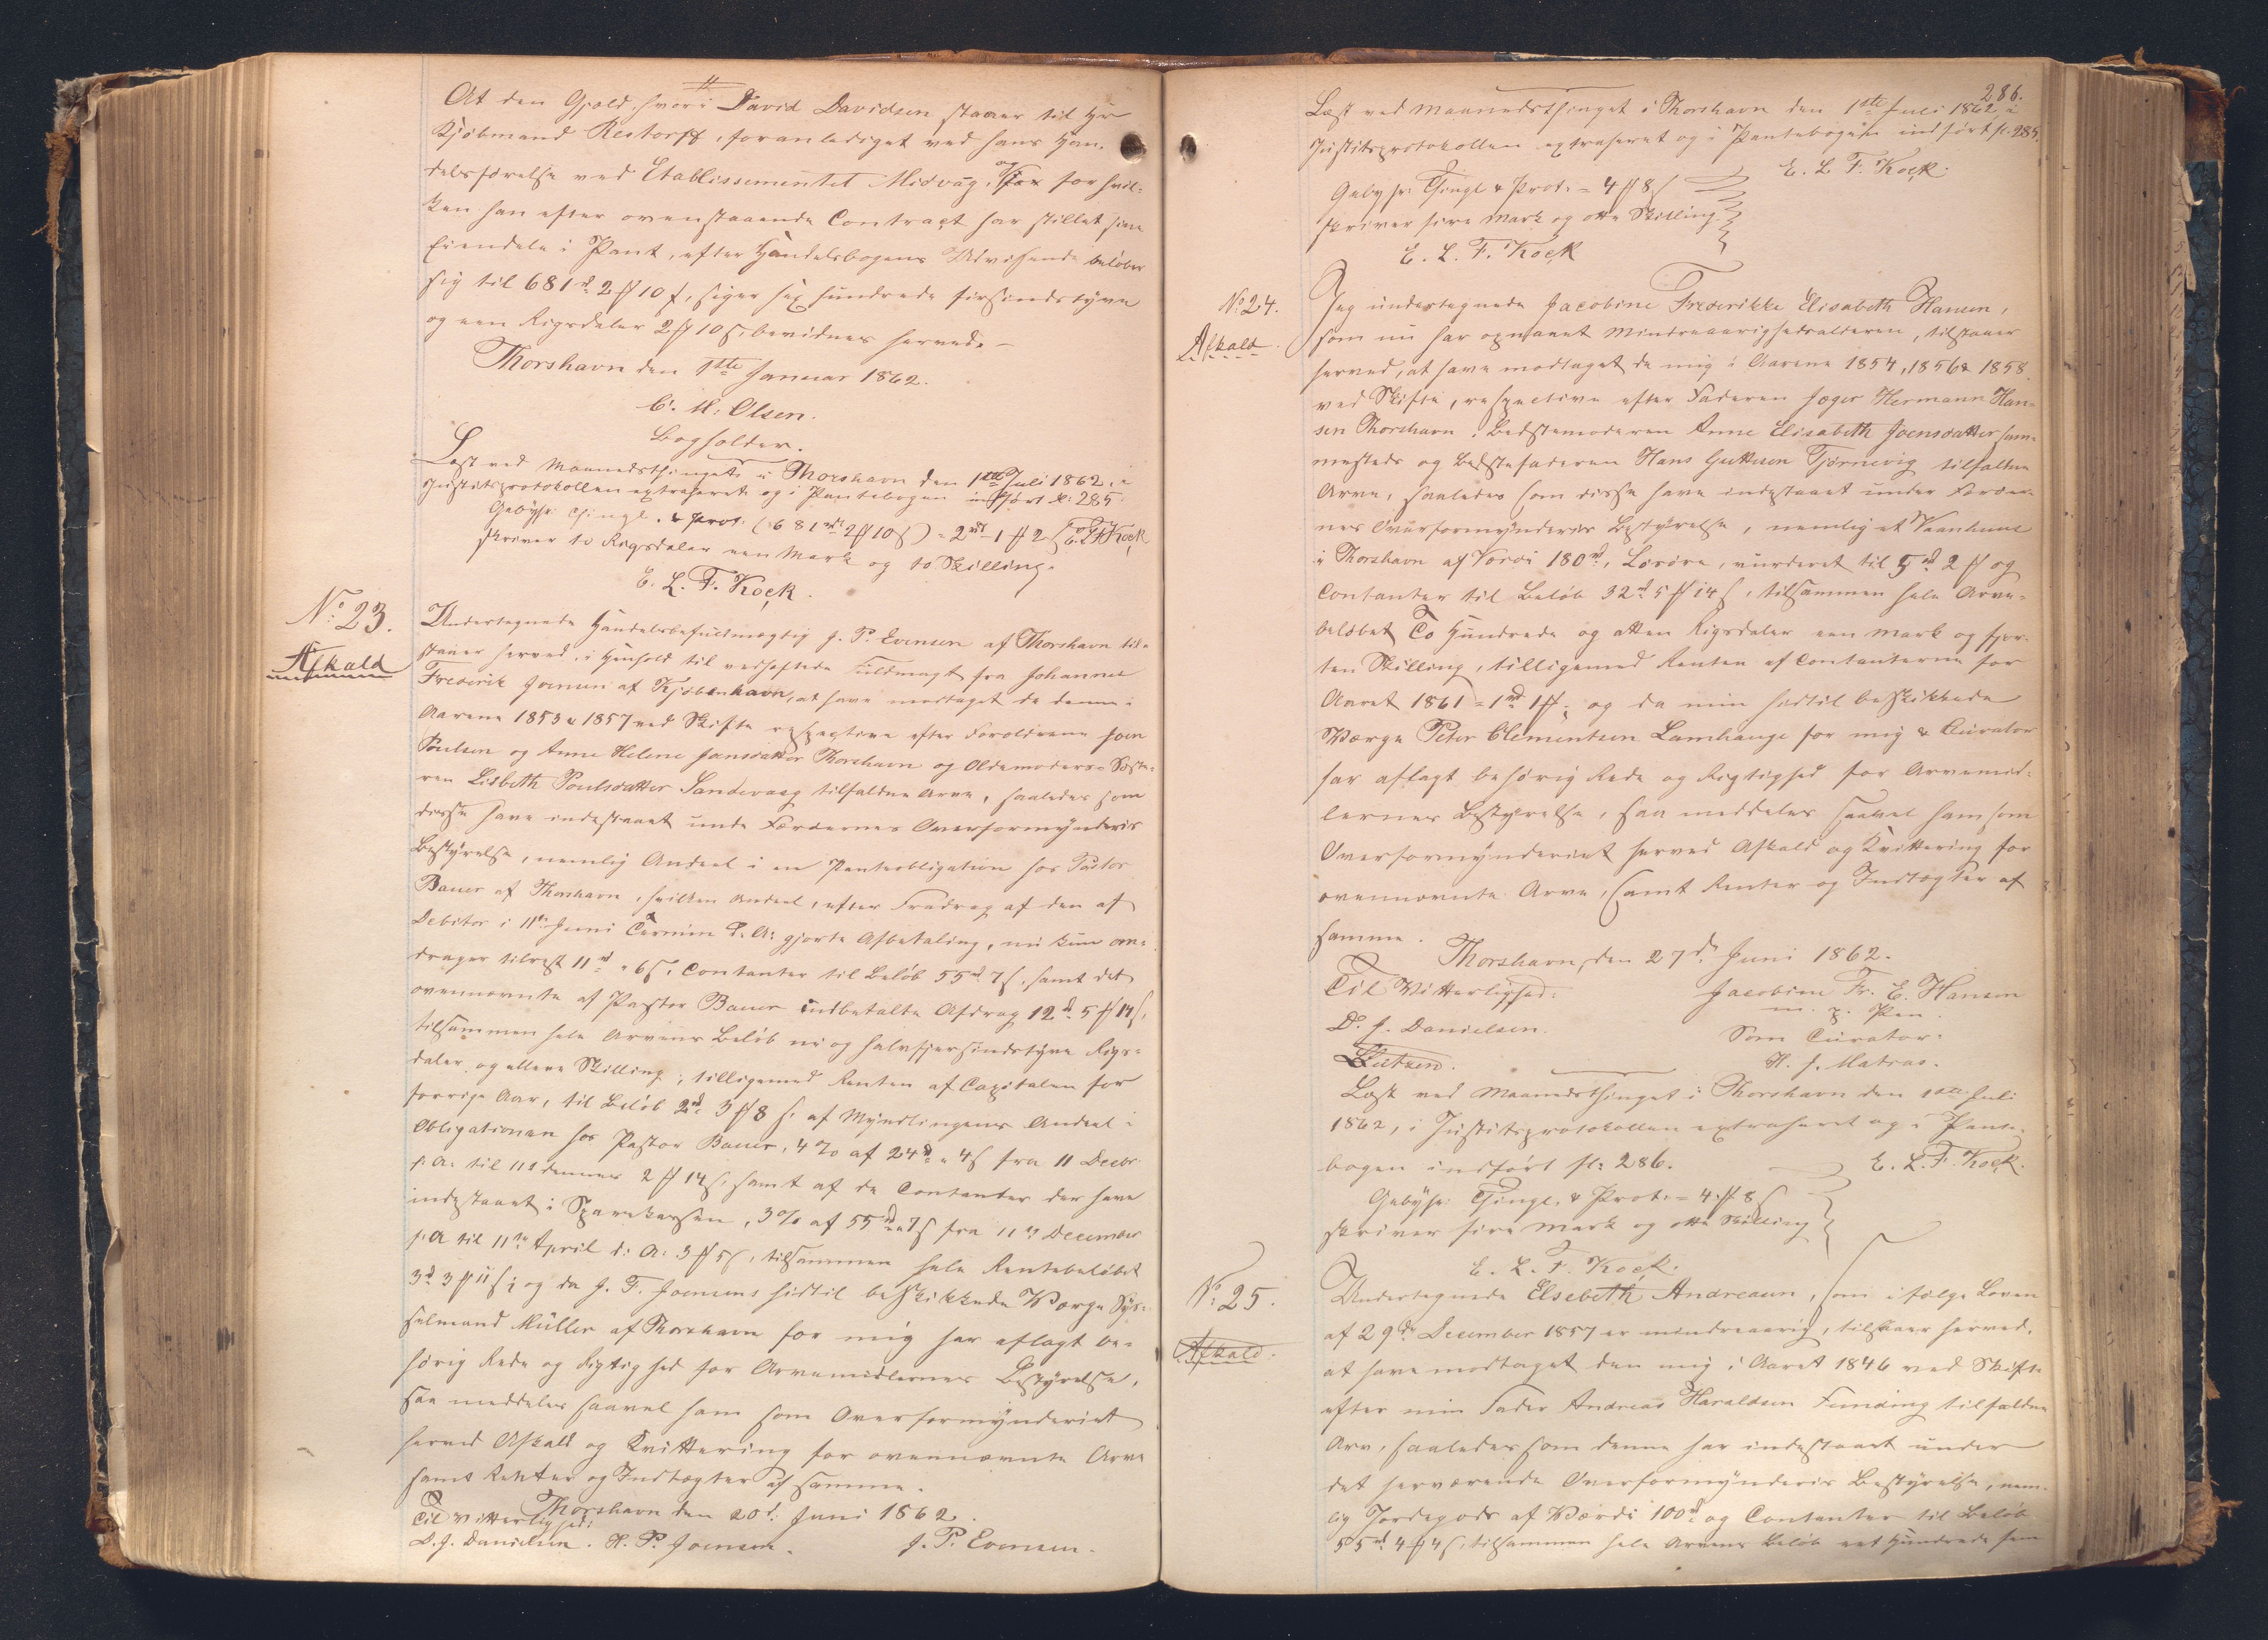 At den Gjæld, hvori David Davidsen staaer til Hr
Kjøbmand Restorff, foranlediget ved hans Han-
delsførelse ved Etablissementet Midvaag, og for hvil-
ken han efter ovenstaaende Contract har stillet sine
Eiendele i Pant, efter Handelsbogens Udvisende beløber
sig til 681 rd 2 ℳ 10 ß, siger sex hundrede firsindstyve
og een Rigsdaler 2 ℳ 10 ß, bevidnes herved.-
Thorshavn den 1ste Januar 1862.
C. M. Olsen.
Bogholder.
Læst ved Maanedsthinget i Thorshavn den 1ste Juli 1862, i
Justitsprotokollen extraheret og i Pantebogen indført fl: 285
Gebyhr: Thingl. & Prot. (681 rd 2 ℳ 10 ß) = 2 rd 1 ℳ 2 ß E.L.F. Kock
skriver to Rigsdaler een Mark og to Skilling.
E. L. F. Kock.
No. 23.
Afkald
Undertegnede Handelsbefuldmægtig J. P. Evensen af Thorshavn til-
staaer herved, i Henhold til vedheftede Fuldmagt fra Johannes
Frederik Joensen af Kjøbenhavn, at have modtaget de denne i
Aarene 1853 & 1857 ved Skifte respective efter Forældrene Joen
Poulsen og Anne Helene Joensdatter Thorshavn og Oldemoders-Søste-
ren Lisbeth Poulsdatter Sandevaag tilfaldne Arve, saaledes som
disse have indestaaet unde Færøernes Overformynderis
Bestyrelse, nemlig Andeel i en Panteobligation hos Pastor
Bauer af Thorshavn, hvilken Andeel, efter Fradrag af den af
Debitor i 11te Juni Termin d. A. gjorte Afbetaling, nu kun an-
drager tilrest 11 rd " 6 ß, Contanter til Beløb 55 rd 7 ß, samt det
ovennævnte af Pastor Bauer indbetalte Afdrag 12 rd 5 ℳ 14 ß,
tilsammen hele Arvens Beløb ni og halvfjersindstyve Rigs-
daler og elleve Skilling; tilligemed Renten af Capitalen for
forrige Aar, til Beløb 2 rd 3 ℳ 8 ß, af Myndlingens Andeel i
Obligationen hos Pastor Bauer, 4 % af 24 rd " 4 ß fra 11 Decbr
f. A. til 11te dennes 2 ℳ 14 ß, samt af de Contanter der have
indestaaet i Sparekassen, 3 % af 55 rd " 7 ß fra 11te December
f. A til 11te April d: A: 3 ℳ 5 ß, tilsammen hele Rentebeløbet
3 rd 3 ℳ 11 ß; og da J. F. Joensens hidtil beskikkede Værge Sys-
selmand Müller af Thorshavn for mig har aflagt be-
hørig Rede og Rigtighed for Arvemidlernes Bestyrelse,
saa meddeles saavel ham som Overformynderiet
herved Afkald og Kvittering for ovennævnte Arve
samt Renter og Indtægter af samme.
Thorshavn den 20d. Juni 1862.
Til Vitterlighed:
D. J. Danielsen. H. P. Joensen. J. P. Evensen.
286.
Læst ved Maanedsthinget i Thorshavn den 1ste Juli 1862, i
Justitsprotokollen extraheret og i Pantebogen indført fl. 285
E. L. F. Kock.
Gebyhr: Thingl & Prot. = 4 ℳ 8 ß
skriver fire Mark og otte Skilling
E. L. F. Kock
No. 24.
Afkald
Jeg undertegnede Jacobine Frederikke Elisabeth Hansen,
som nu har opnaaet Mindreaarighedsalderen, tilstaaer
herved, at have modtaget de mig i Aarene 1854, 1856 & 1858
ved Skifte, respective efter Faderen Jæger Hermann Han-
sen Thorshavn, Bedstemoderen Anne Elisabeth Joensdatter sam-
mesteds og Bedstefaderen Hans Guttesen Tjørnevig tilfaldne
Arve, saaledes som disse have indestaaet under Færøer-
nes Overformynderis Bestyrelse, nemlig et Vaanhuus
i Thorshavn af Værdi 180 rd, Løsøre, vurderet til 5 rd 2 ℳ og
Contanter til Beløb 32 rd 5 ℳ 14 ß, tilsammen hele Arve-
beløbet To Hundrede og atten Rigsdaler een Mark og fjor-
ten Skilling, tilligemed Renten af Contanterne for
Aaret 1861 = 1 rd 1 ℳ; og da min hidtil beskikkede
Værge Peter Clementsen Lamhauge for mig & Curator
har aflagt behørig Rede og Rigtighed for Arvemid-
lernes Bestyrelse, saa meddeles saavel ham som
Overformynderiet herved Afkald og Kvittering for
ovennævnte Arve, samt Renter og Indtægter af
samme.
Thorshavn, den 27d. Juni 1862.
Til Vitterlighed:
Jacobine Fr. E. Hansen
m. p. Pen.
D. J. Danielsen.
Som Curator:
Lützen.
H. J. Matras.
Læst ved Maanedsthinget i Thorshavn den 1ste Juli
1862, i Justitsprotokollen extraheret og i Pante-
bogen indført fl: 286.
E. L. F. Kock.
Gebyhr: Thingl. & Prot. = 4 ℳ 8 ß
skriver fire Mark og otte Skilling
E. L. F. Kock.
No. 25.
Afkald.
Undertegnede Elsebeth Andreasen, som ifølge Loven
af 29d. December 1857 er mindreaarig, tilstaaer herved,
at have modtaget den mig i Aaret 1846 ved Skifte
efter min Fader Andreas Haraldsen Funding tilfaldne
Arv, saaledes som denne har indestaaet under
det herværende Overformynderis Bestyrelse, nem-
lig Jordegods af Værdi 100 rd og Contanter til Beløb
55 rd 4 ℳ 4 ß, tilsammen hele Arvens Beløb eet Hundrede fem